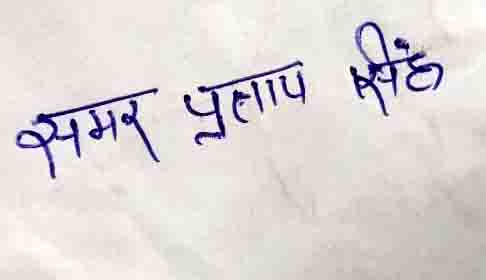 समर प्रताप सिंह